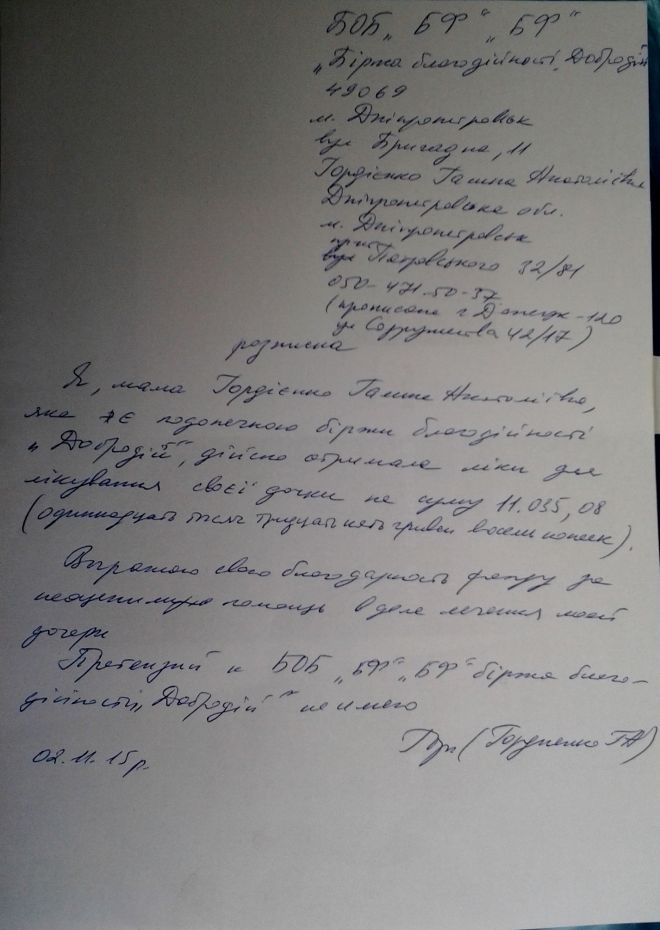 БОБ „ БФ “ „ БФ “
„ Біржа благодійності „Добродій
49069
м. Дніпропетровськ
вул Бригадна, 11
Гордієнко Галина Анатоліївна
Дніпропетровська обл.
м. Дніпропетровськ
Петровського 32/81
050-471-50-37
(прописана г Донецк-120
Содружества 42/17)
розписка
Я, мама Гордієнко Галина Анатоліївна,
яка є подопечною біржи благодійності
„ Добродій“, дійсно отримала ліки для
лікування своєї дочки на суму 11.035,08
(одиннадцать тысяч тридцать пять гривен восемь копеек).
Выражаю свою благодарность фонду за
неоценимую помощь в деле лечения моей
дочери
Претензий к БОБ „БФ“ „БФ“ біржа благо-
дійності „Добродій“ не имею
(Гордиенко ГА)
02.11.15р.